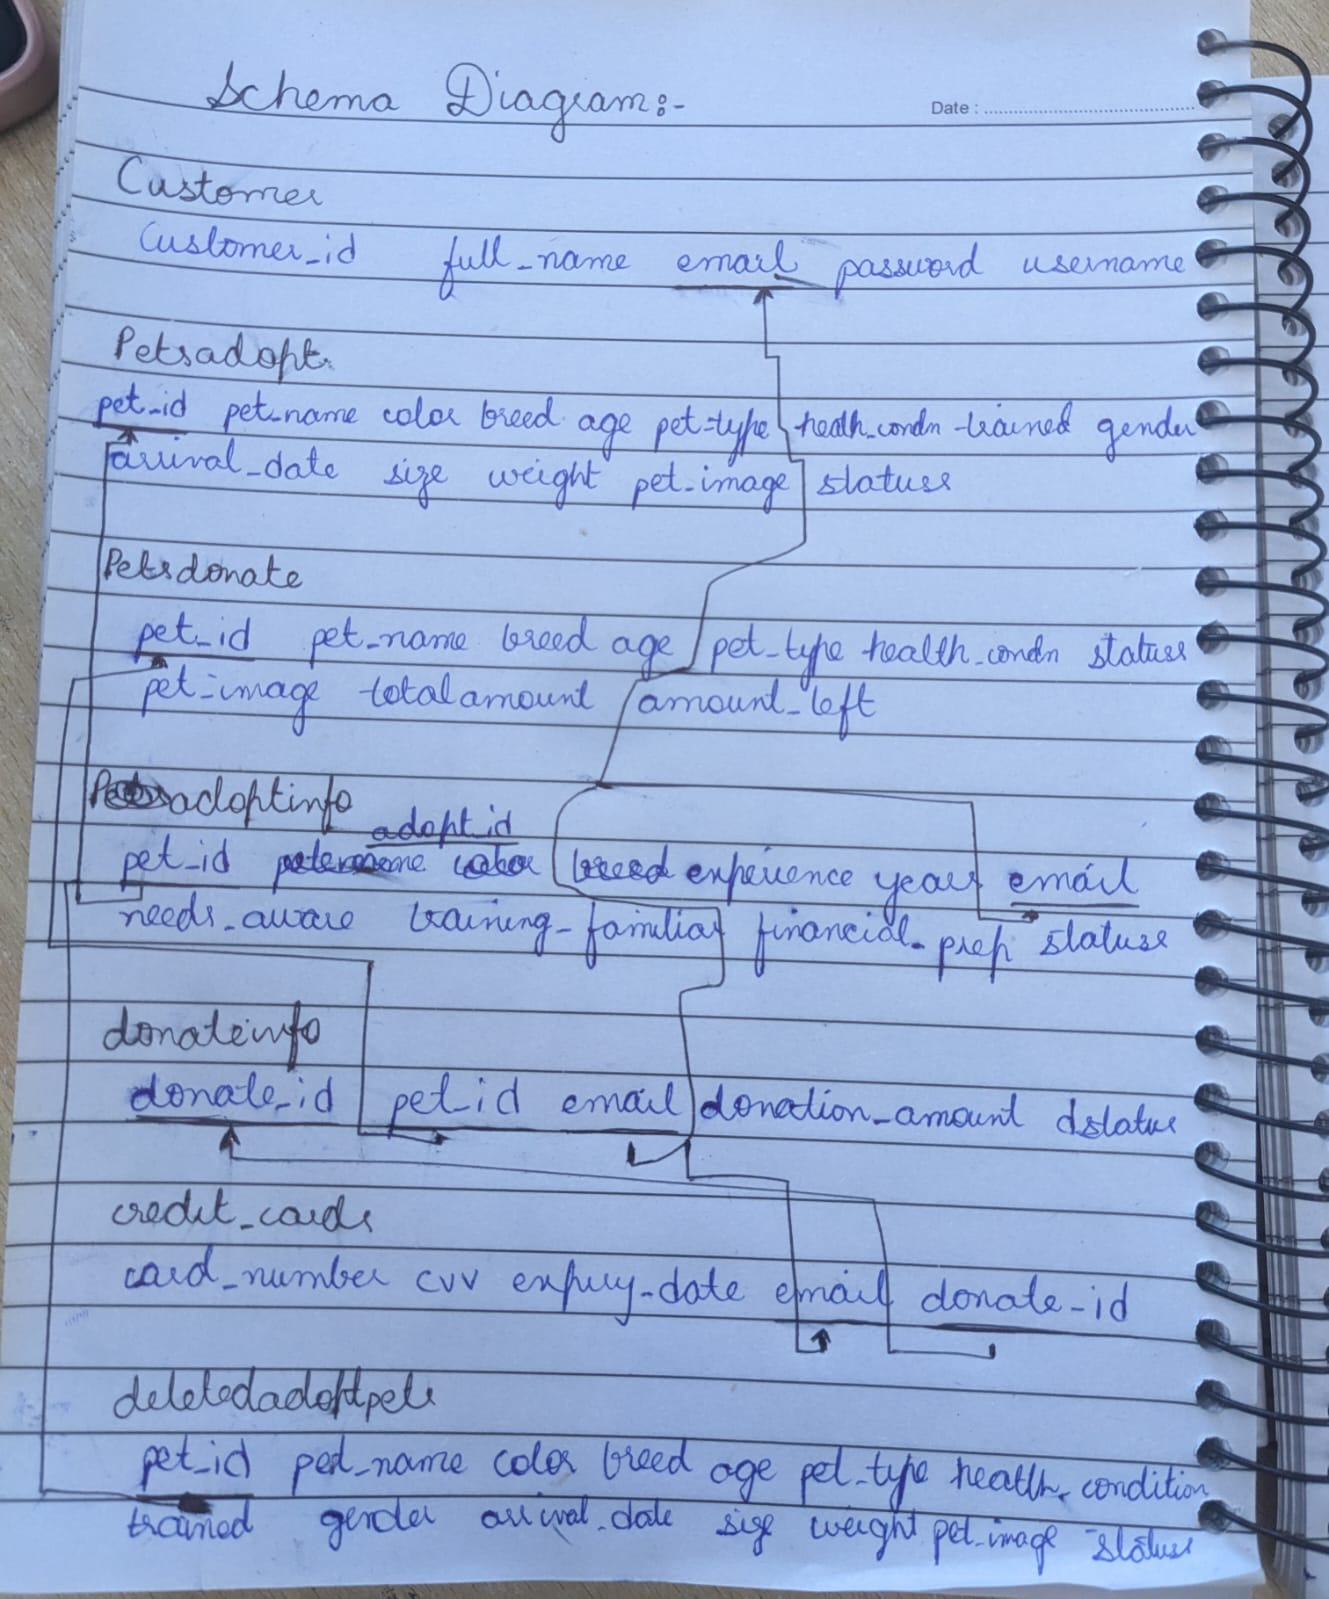 Schema Diagram:-
Date :
Customer
Customer_id full_name email password username
Petsadopt
pet_id pet_name color breed age pet_type health_condn trained gender
arrival_date size weight pet_image statuss
Petsdonate
pet_id pet_name breed age pet_type health_condn statuss
pet_image totalamount amount_left
adoptinfo
adopt_id
pet_id experience years email
needs_aware training_familiar financial_prep statuss
donateinfo
donate_id pet_id email donation_amount dstatus
credit_cards
card_number cvv expiry_date email donate_id
deletedadoptpets
pet_id pet_name color breed age pet_type health_condition
trained gender arrival_date size weight pet_image status